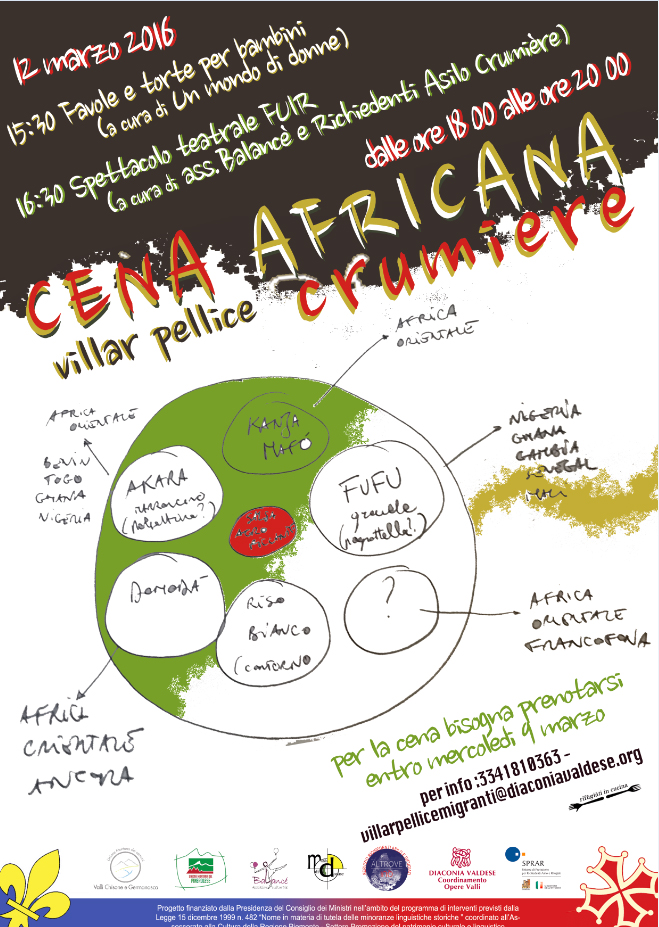 12 marzo 2016
15:30 Favole e torte per bambini
(a cura di Un mondo di donne)
16:30 Spettacolo teatrale FUIR
(a cura di ass. Balancè e Richiedenti Asilo Crumière)
dalle ore 18 00 alle ore 20 00
CENA AFRICANA
villar pellice crumiere
AFRICA
ORIENTALE
KANJA
MAFÓ
AFRICA
ORIENTALE
BENIN
TOGO
GHANA
NIGERIA
AKARA
NIGERIA
GHANA
GAMBIA
SENEGAL
MALI
FUFU
DOMODÀ
RISO
BIANCO
(CONTORNO
?
AFRICA
ORIENTALE
FRANCOFONA
AFRICA
ORIENTALE
ANCORA
per la cena bisogna prenotarsi
entro mercoledì 9 marzo
per info :3341810363 -
villarpellicemigranti@diaconiavaldese.org
rifugiati in cucina
Valli Chisone e Germanasca
Balancé
ALTROVE
DIACONIA VALDESE
Coordinamento
Opere Valli
SPRAR
Progetto finanziato dalla Presidenza del Consiglio dei Ministri nell'ambito del programma di interventi previsti dalla
Legge 15 dicembre 1999 n. 482 "Nome in materia di tutela delle minoranze linguistiche storiche " coordinato all'As-